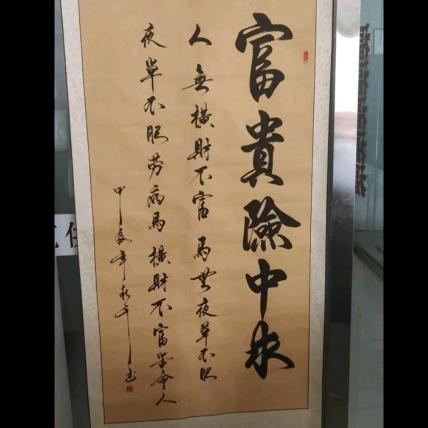 富貴險中求
人無橫財不富馬無夜草不肥
夜草不肥劳病馬橫財不富命人
甲辰年